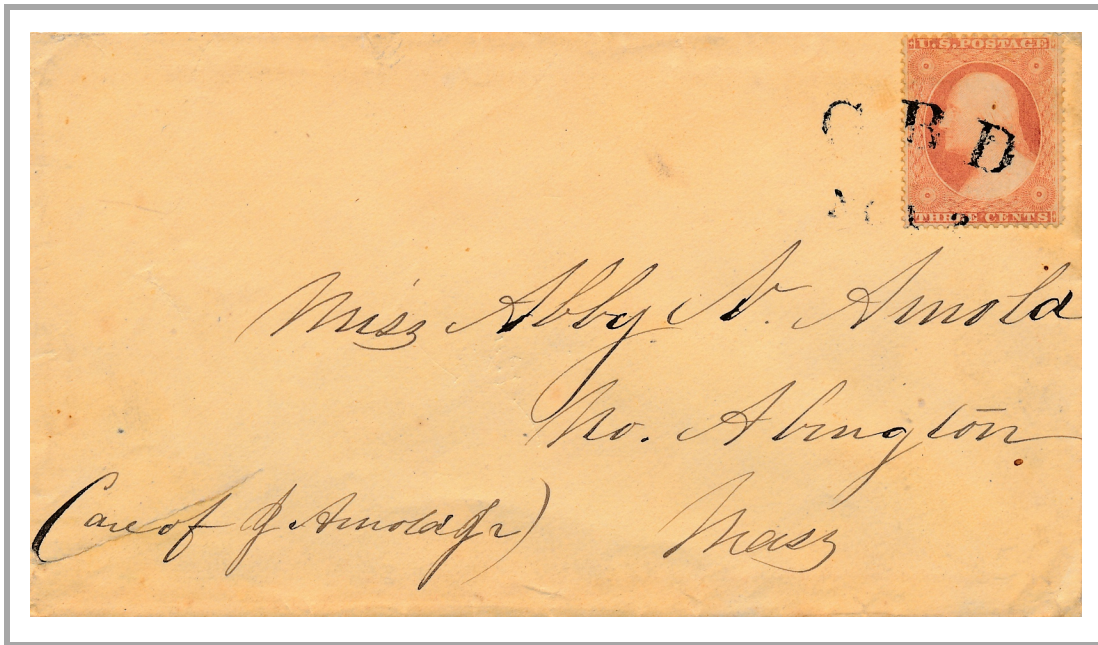 U.S. POSTAGE
C R D
THREE CENTS
Miss Abby N. Arnold
No. Abington
Mass
(Care of J Arnold Jr)